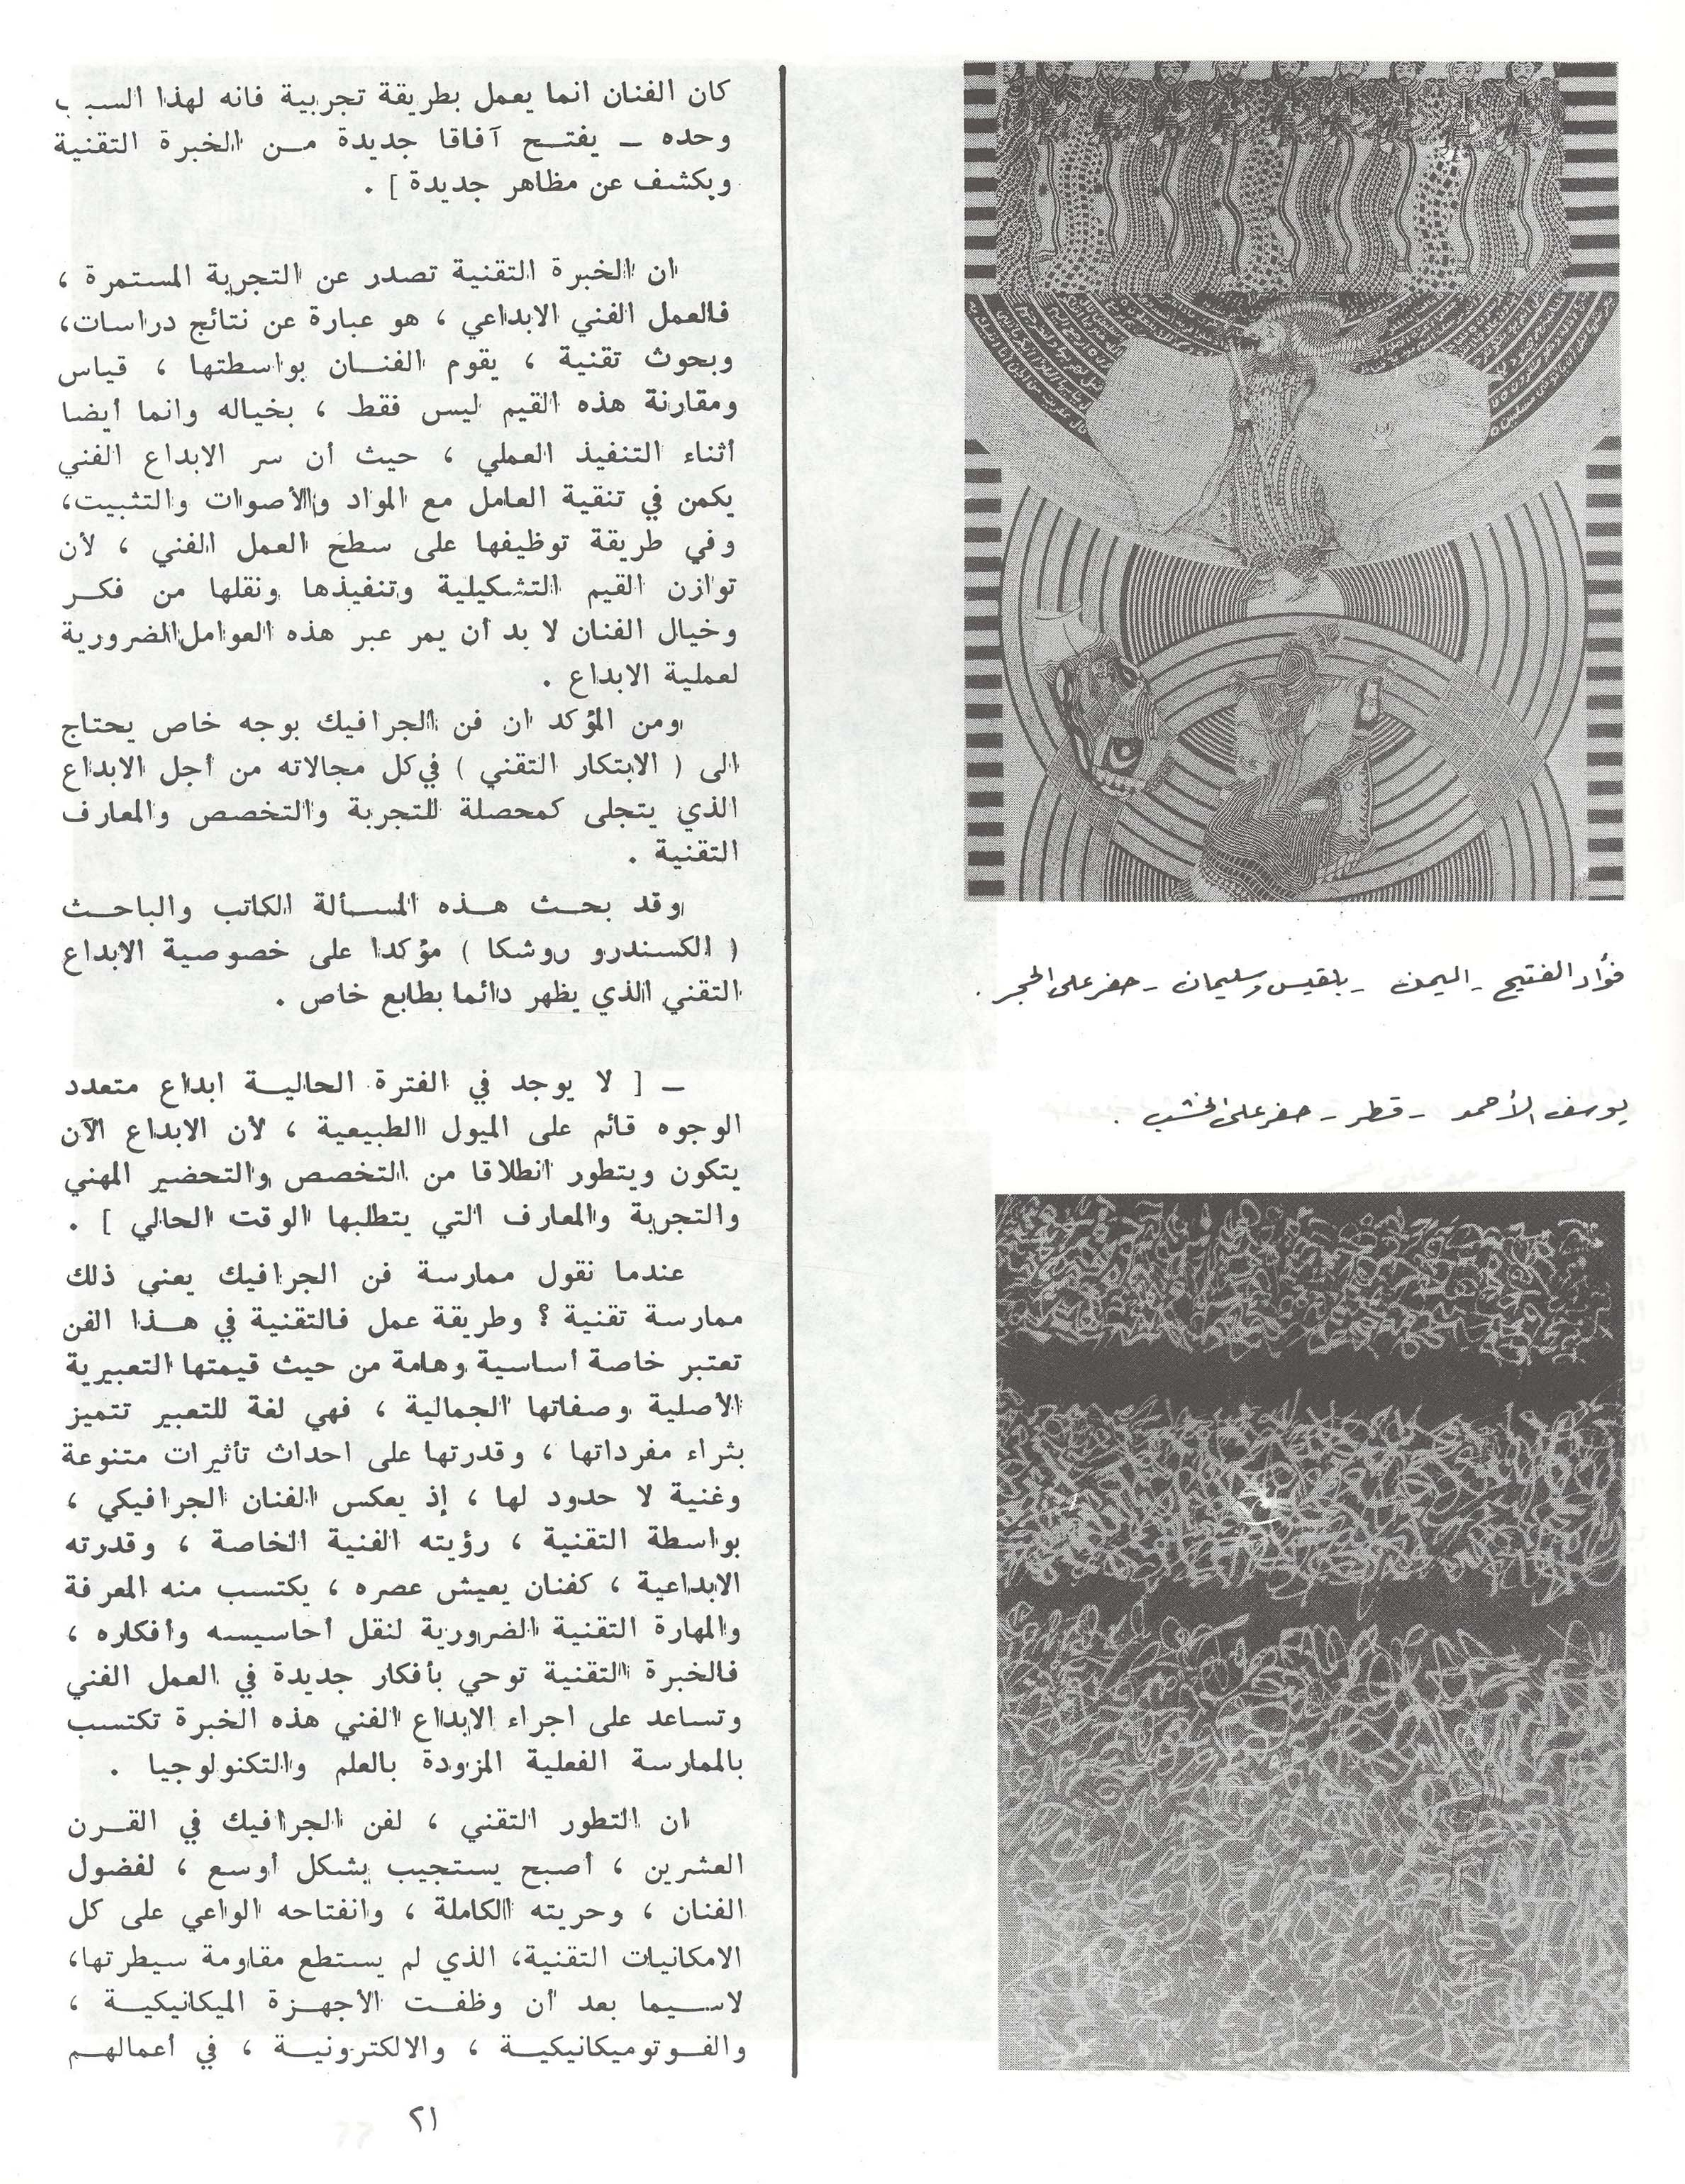 فؤاد الفتيح - اليمن - بلقيس وسليمان - حفر على الحجر .
يوسف الأحمد - قطر - حفر على الخشب .
كان الفنان انما يعمل بطريقة تجريبية فانه لهذا السبب
وحده – يفتح آفاقا جديدة من الخبرة التقنية
ويكشف عن مظاهر جديدة ] .
ان الخبرة التقنية تصدر عن التجربة المستمرة ،
فالعمل الفني الابداعي ، هو عبارة عن نتائج دراسات،
وبحوث تقنية ، يقوم الفنان بواسطتها ، قياس
ومقارنة هذه القيم ليس فقط ، بخياله وانما أيضا
أثناء التنفيذ العملي ، حيث أن سر الابداع الفني
يكمن في تنقية العامل مع المواد والأصوات والتثبيت،
وفي طريقة توظيفها على سطح العمل الفني ، لأن
توازن القيم التشكيلية وتنفيذها ونقلها من فكر
وخيال الفنان لا بد أن يمر عبر هذه العوامل الضرورية
لعملية الابداع .
ومن المؤكد ان فن الجرافيك بوجه خاص يحتاج
الى ( الابتكار التقني ) في كل مجالاته من أجل الابداع
الذي يتجلى كمحصلة للتجربة والتخصص والمعارف
التقنية .
وقد بحث هذه المسألة الكاتب والباحث
( الكسندرو روشكا ) مؤكدا على خصوصية الابداع
التقني الذي يظهر دائما بطابع خاص .
– [ لا يوجد في الفترة الحالية ابداع متعدد
الوجوه قائم على الميول الطبيعية ، لأن الابداع الآن
يتكون ويتطور انطلاقا من التخصص والتحضير المهني
والتجربة والمعارف التي يتطلبها الوقت الحالي ] .
عندما نقول ممارسة فن الجرافيك يعني ذلك
ممارسة تقنية ؟ وطريقة عمل فالتقنية في هذا الفن
تعتبر خاصة أساسية وهامة من حيث قيمتها التعبيرية
الأصلية وصفاتها الجمالية ، فهي لغة للتعبير تتميز
بثراء مفرداتها ، وقدرتها على احداث تأثيرات متنوعة
وغنية لا حدود لها ، إذ يعكس الفنان الجرافيكي ،
بواسطة التقنية ، رؤيته الفنية الخاصة ، وقدرته
الابداعية ، كفنان يعيش عصره ، يكتسب منه المعرفة
والمهارة التقنية الضرورية لنقل أحاسيسه وأفكاره ،
فالخبرة التقنية توحي بأفكار جديدة في العمل الفني
وتساعد على اجراء الابداع الفني هذه الخبرة تكتسب
بالممارسة الفعلية المزودة بالعلم والتكنولوجيا .
ان التطور التقني ، لفن الجرافيك في القرن
العشرين ، أصبح يستجيب بشكل أوسع ، لفضول
الفنان ، وحريته الكاملة ، وانفتاحه الواعي على كل
الامكانيات التقنية، الذي لم يستطع مقاومة سيطرتها،
لاسيما بعد أن وظفت الأجهزة الميكانيكية ،
والفوتوميكانيكية ، والالكترونية ، في أعمالهم
٢١